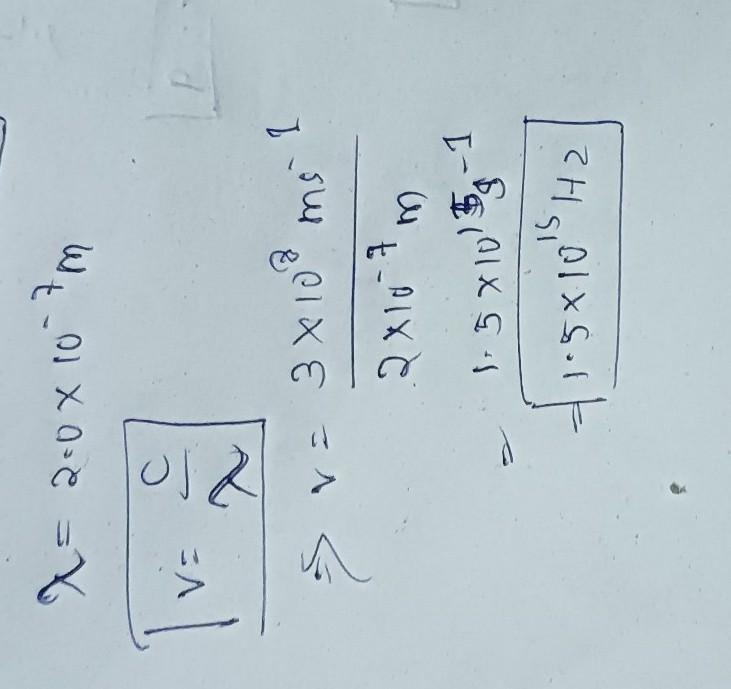 λ = 2.0 × 10⁻⁷ m
ν = c/λ
⇒ ν = 3 × 10⁸ ms⁻¹
2 × 10⁻⁷ m
= 1.5 × 10¹⁵ s⁻¹
= 1.5 × 10¹⁵ Hz